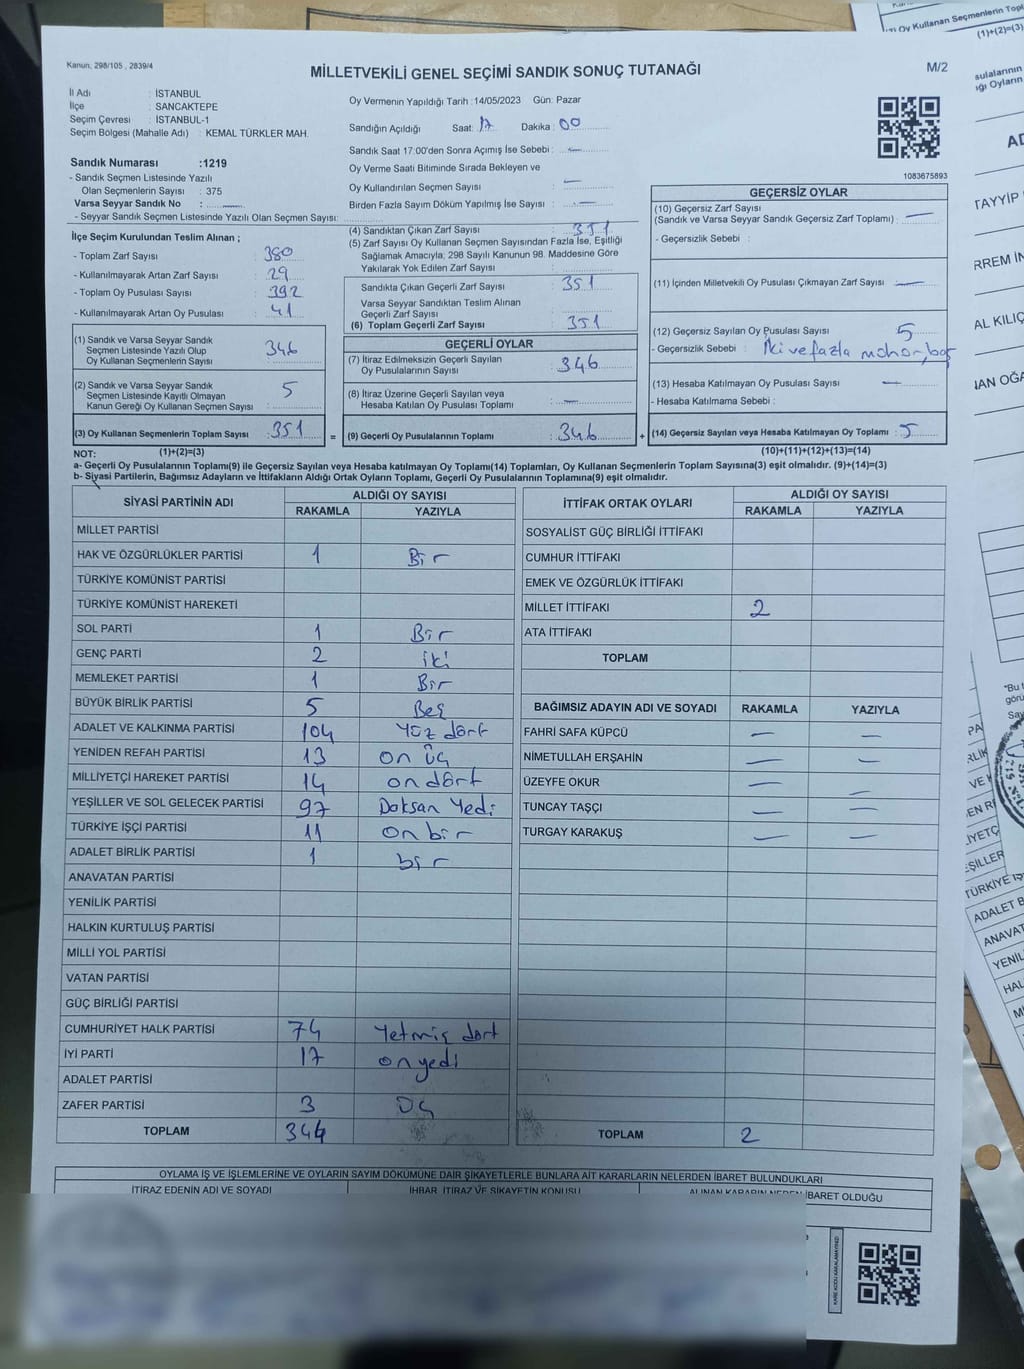 Kanun, 298/105 , 2839/4
MİLLETVEKİLİ GENEL SEÇİMİ SANDIK SONUÇ TUTANAĞI
M/2
İl Adı : İSTANBUL
İlçe : SANCAKTEPE
Seçim Çevresi : İSTANBUL-1
Seçim Bölgesi (Mahalle Adı) : KEMAL TÜRKLER MAH.
Sandık Numarası :1219
- Sandık Seçmen Listesinde Yazılı
Olan Seçmenlerin Sayısı : 375
Varsa Seyyar Sandık No :
- Seyyar Sandık Seçmen Listesinde Yazılı Olan Seçmen Sayısı:
Oy Vermenin Yapıldığı Tarih :14/05/2023 Gün: Pazar
Sandığın Açıldığı Saat: 17 Dakika : 00
Sandık Saat 17:00'den Sonra Açımış İse Sebebi : —
Oy Verme Saati Bitiminde Sırada Bekleyen ve
Oy Kullandırılan Seçmen Sayısı : —
Birden Fazla Sayım Döküm Yapılmış İse Sayısı : —
1083675893
İlçe Seçim Kurulundan Teslim Alınan ;
- Toplam Zarf Sayısı : 380
- Kullanılmayarak Artan Zarf Sayısı : 29
- Toplam Oy Pusulası Sayısı : 392
- Kullanılmayarak Artan Oy Pusulası : 41
(1) Sandık ve Varsa Seyyar Sandık
Seçmen Listesinde Yazılı Olup
Oy Kullanan Seçmenlerin Sayısı : 346
(2) Sandık ve Varsa Seyyar Sandık
Seçmen Listesinde Kayıtlı Olmayan
Kanun Gereği Oy Kullanan Seçmen Sayısı : 5
(3) Oy Kullanan Seçmenlerin Toplam Sayısı : 351 =
(4) Sandıktan Çıkan Zarf Sayısı : 351
(5) Zarf Sayısı Oy Kullanan Seçmen Sayısından Fazla İse, Eşitliği
Sağlamak Amacıyla; 298 Sayılı Kanunun 98. Maddesine Göre
Yakılarak Yok Edilen Zarf Sayısı :
Sandıkta Çıkan Geçerli Zarf Sayısı : 351
Varsa Seyyar Sandıktan Teslim Alınan
Geçerli Zarf Sayısı :
(6) Toplam Geçerli Zarf Sayısı : 351
GEÇERLİ OYLAR
(7) İtiraz Edilmeksizin Geçerli Sayılan
Oy Pusulalarının Sayısı : 346
(8) İtiraz Üzerine Geçerli Sayılan veya
Hesaba Katılan Oy Pusulası Toplamı : —
(9) Geçerli Oy Pusulalarının Toplamı : 346 +
GEÇERSİZ OYLAR
(10) Geçersiz Zarf Sayısı
(Sandık ve Varsa Seyyar Sandık Geçersiz Zarf Toplamı) : —
- Geçersizlik Sebebi :
(11) İçinden Milletvekili Oy Pusulası Çıkmayan Zarf Sayısı : —
(12) Geçersiz Sayılan Oy Pusulası Sayısı : 5
- Geçersizlik Sebebi : İki ve fazla
(13) Hesaba Katılmayan Oy Pusulası Sayısı : —
- Hesaba Katılmama Sebebi :
(14) Geçersiz Sayılan veya Hesaba Katılmayan Oy Toplamı : 5
NOT: (1)+(2)=(3) (10)+(11)+(12)+(13)=(14)
a- Geçerli Oy Pusulalarının Toplamı(9) ile Geçersiz Sayılan veya Hesaba katılmayan Oy Toplamı(14) Toplamları, Oy Kullanan Seçmenlerin Toplam Sayısına(3) eşit olmalıdır. (9)+(14)=(3)
b- Siyasi Partilerin, Bağımsız Adayların ve İttifakların Aldığı Ortak Oyların Toplamı, Geçerli Oy Pusulalarının Toplamına(9) eşit olmalıdır.
SİYASİ PARTİNİN ADI ALDIĞI OY SAYISI
RAKAMLA YAZIYLA
MİLLET PARTİSİ
HAK VE ÖZGÜRLÜKLER PARTİSİ 1 Bir
TÜRKİYE KOMÜNİST PARTİSİ
TÜRKİYE KOMÜNİST HAREKETİ
SOL PARTİ 1 Bir
GENÇ PARTİ 2 iki
MEMLEKET PARTİSİ 1 Bir
BÜYÜK BİRLİK PARTİSİ 5 Beş
ADALET VE KALKINMA PARTİSİ 104 Yüz dört
YENİDEN REFAH PARTİSİ 13 on üç
MİLLİYETÇİ HAREKET PARTİSİ 14 on dört
YEŞİLLER VE SOL GELECEK PARTİSİ 97 Doksan Yedi
TÜRKİYE İŞÇİ PARTİSİ 11 on bir
ADALET BİRLİK PARTİSİ 1 bir
ANAVATAN PARTİSİ
YENİLİK PARTİSİ
HALKIN KURTULUŞ PARTİSİ
MİLLİ YOL PARTİSİ
VATAN PARTİSİ
GÜÇ BİRLİĞİ PARTİSİ
CUMHURİYET HALK PARTİSİ 74 Yetmiş dört
İYİ PARTİ 17 on yedi
ADALET PARTİSİ
ZAFER PARTİSİ 3 Üç
TOPLAM 344
İTTİFAK ORTAK OYLARI ALDIĞI OY SAYISI
RAKAMLA YAZIYLA
SOSYALİST GÜÇ BİRLİĞİ İTTİFAKI
CUMHUR İTTİFAKI
EMEK VE ÖZGÜRLÜK İTTİFAKI
MİLLET İTTİFAKI 2
ATA İTTİFAKI
TOPLAM
BAĞIMSIZ ADAYIN ADI VE SOYADI RAKAMLA YAZIYLA
FAHRİ SAFA KÜPCÜ — —
NİMETULLAH ERŞAHİN — —
ÜZEYFE OKUR — —
TUNCAY TAŞÇI — —
TURGAY KARAKUŞ — —
TOPLAM 2
OYLAMA İŞ VE İŞLEMLERİNE VE OYLARIN SAYIM DÖKÜMÜNE DAİR ŞİKAYETLERLE BUNLARA AİT KARARLARIN NELERDEN İBARET BULUNDUKLARI
İTİRAZ EDENİN ADI VE SOYADI İHBAR, İTİRAZ VE ŞİKAYETİN KONUSU ALINAN KARARIN NEDEN İBARET OLDUĞU
KARE KODU KARALAMAYINIZ!
Oy Kullanan Seçmenlerin Topl
(1)+(2)=(3)